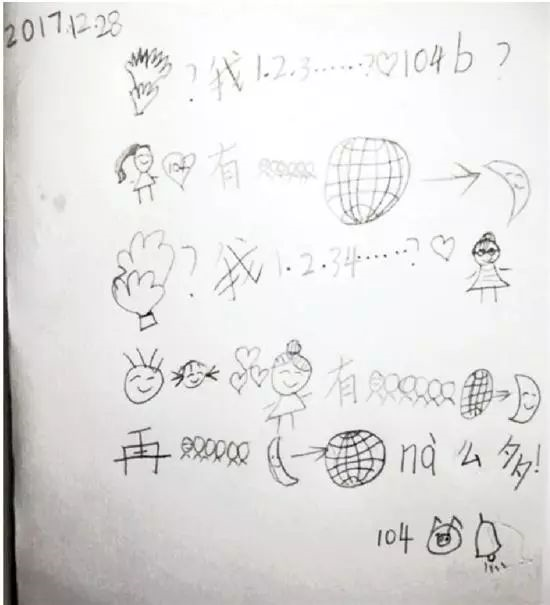 2017.12.28
? 我 1.2.3......? 104b ?
104 有
? 我 1.2.34......?
有
再 nà 么多!
104